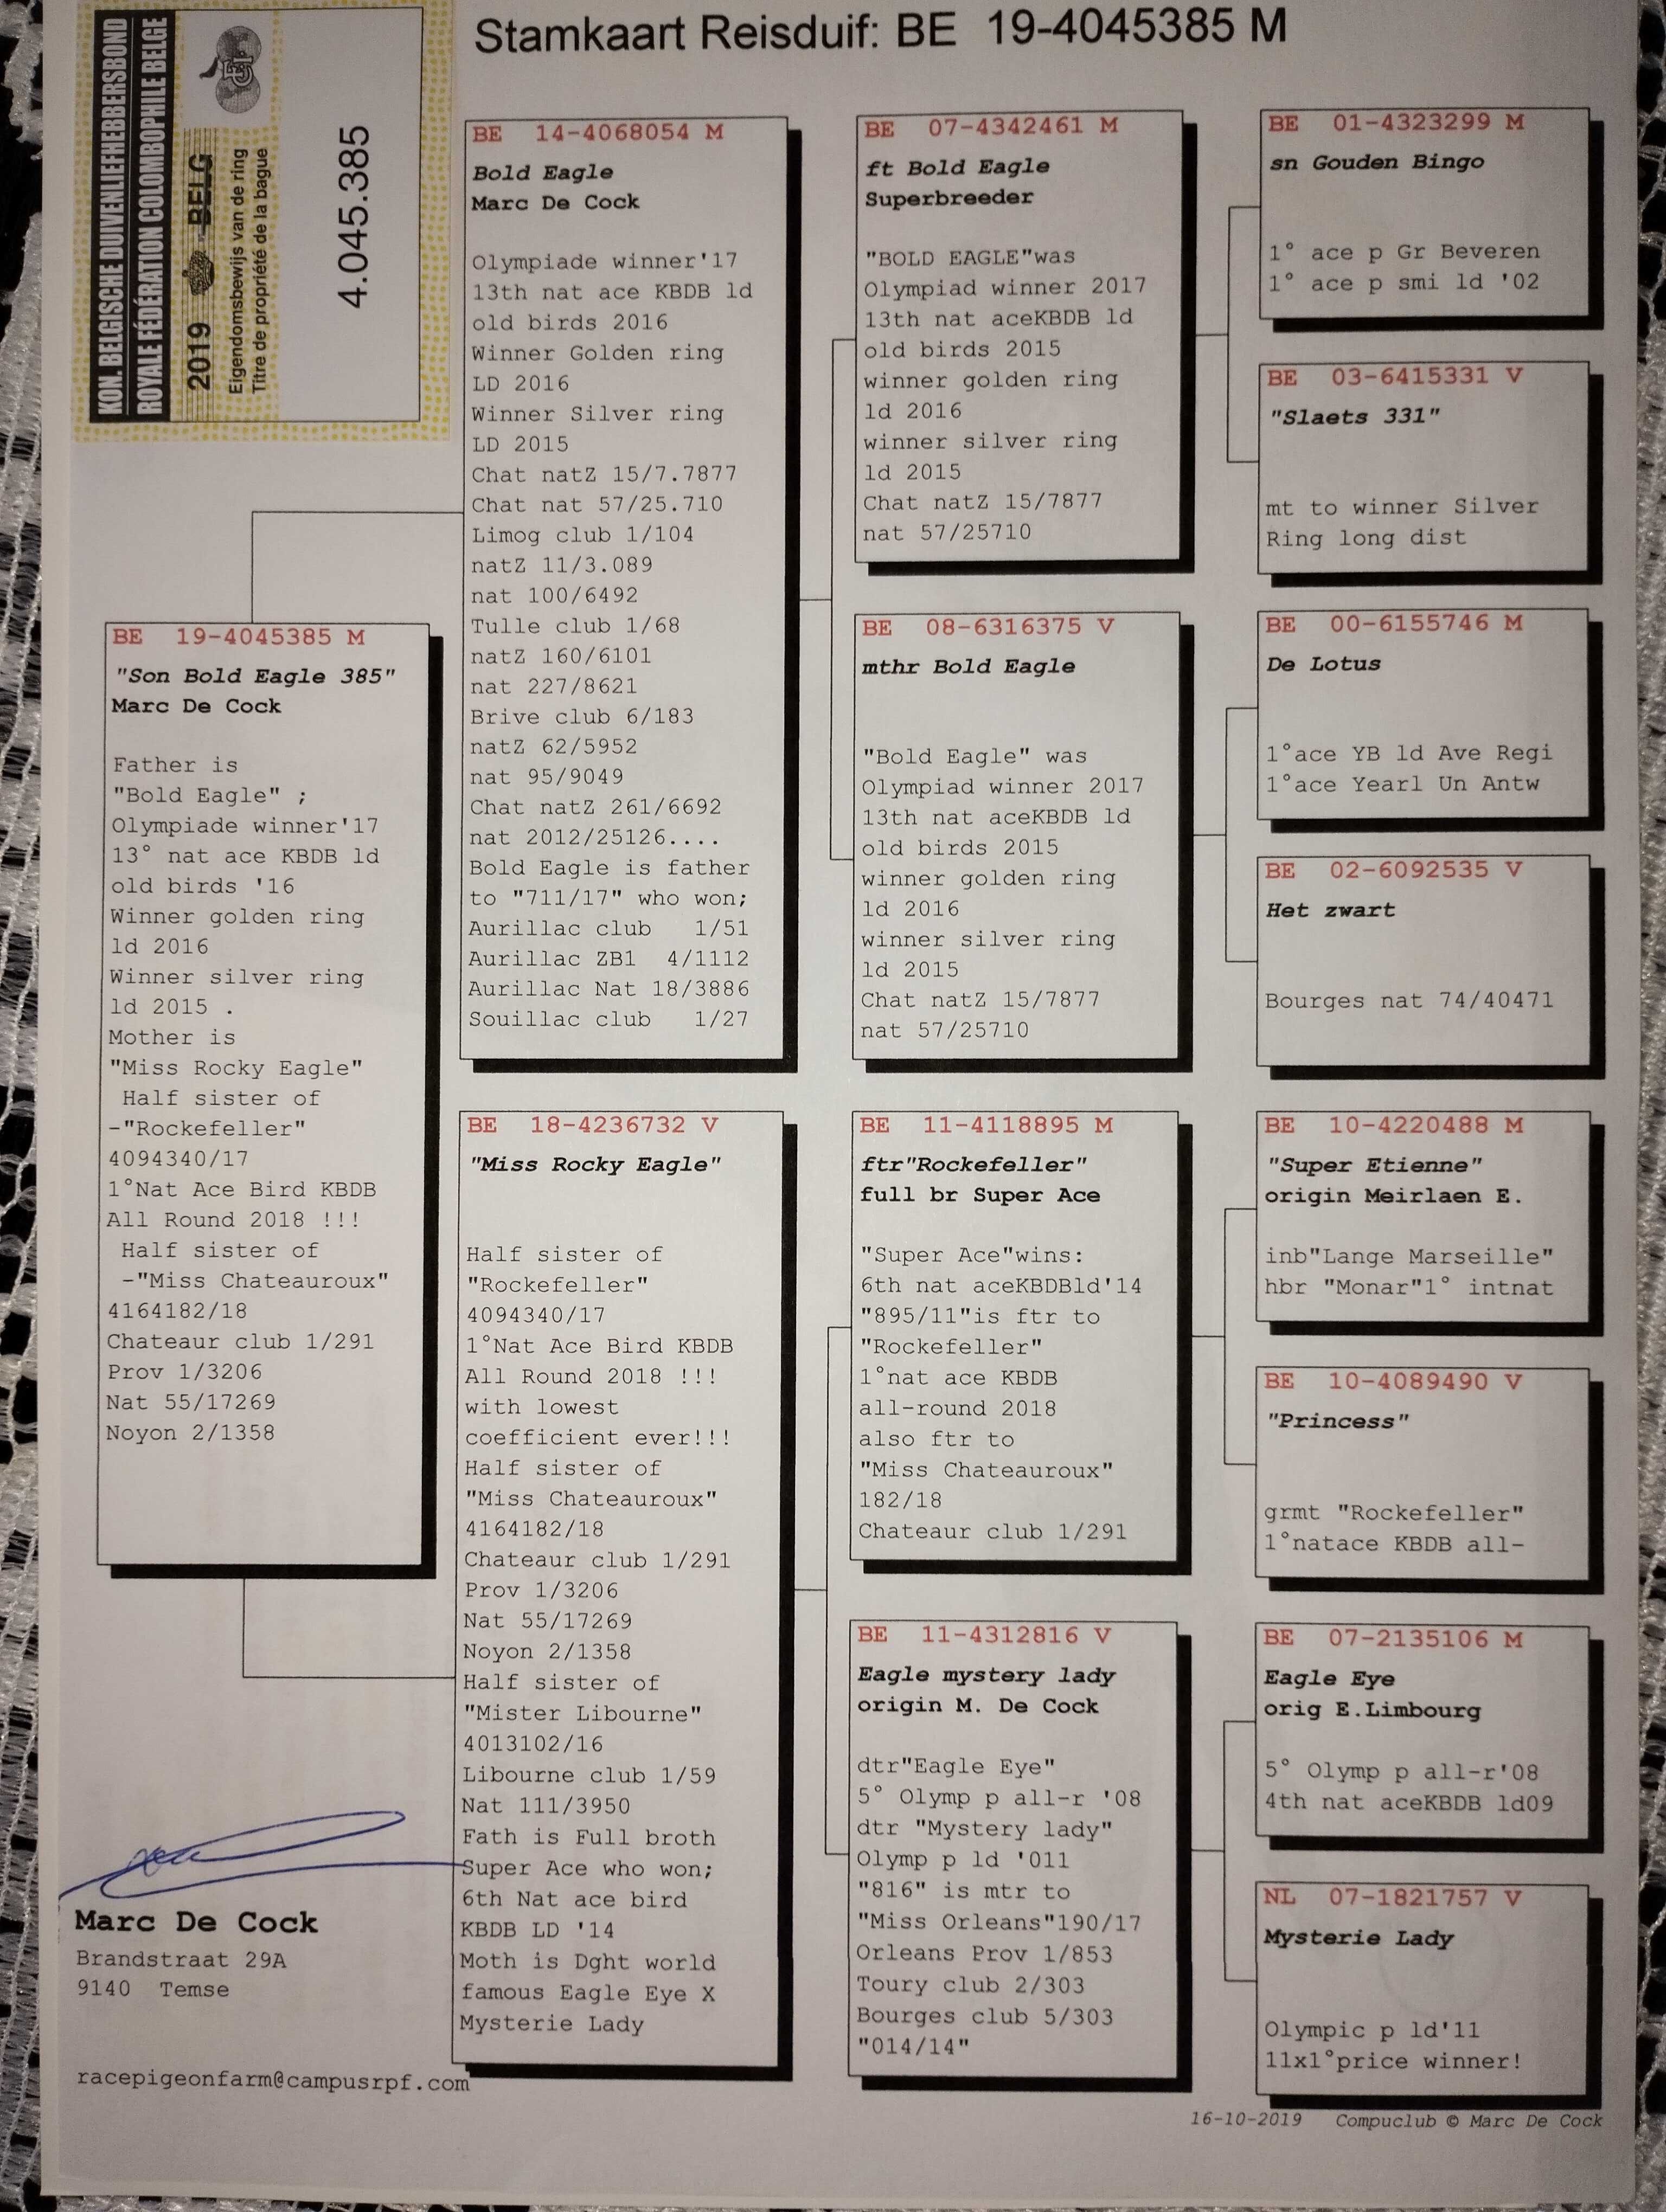 Stamkaart Reisduif: BE 19-4045385 M
KON. BELGISCHE DUIVENLIEFHEBBERSBOND
ROYALE FÉDÉRATION COLOMBOPHILE BELGE
2019 BELG
Eigendomsbewijs van de ring
Titre de propriété de la bague
4.045.385
BE 19-4045385 M
"Son Bold Eagle 385"
Marc De Cock
Father is
"Bold Eagle" ;
Olympiade winner'17
13° nat ace KBDB ld
old birds '16
Winner golden ring
ld 2016
Winner silver ring
ld 2015 .
Mother is
"Miss Rocky Eagle"
Half sister of
-"Rockefeller"
4094340/17
1°Nat Ace Bird KBDB
All Round 2018 !!!
Half sister of
-"Miss Chateauroux"
4164182/18
Chateaur club 1/291
Prov 1/3206
Nat 55/17269
Noyon 2/1358
BE 14-4068054 M
Bold Eagle
Marc De Cock
Olympiade winner'17
13th nat ace KBDB ld
old birds 2016
Winner Golden ring
LD 2016
Winner Silver ring
LD 2015
Chat natZ 15/7.7877
Chat nat 57/25.710
Limog club 1/104
natZ 11/3.089
nat 100/6492
Tulle club 1/68
natZ 160/6101
nat 227/8621
Brive club 6/183
natZ 62/5952
nat 95/9049
Chat natZ 261/6692
nat 2012/25126....
Bold Eagle is father
to "711/17" who won;
Aurillac club 1/51
Aurillac ZB1 4/1112
Aurillac Nat 18/3886
Souillac club 1/27
BE 18-4236732 V
"Miss Rocky Eagle"
Half sister of
"Rockefeller"
4094340/17
1°Nat Ace Bird KBDB
All Round 2018 !!!
with lowest
coefficient ever!!!
Half sister of
"Miss Chateauroux"
4164182/18
Chateaur club 1/291
Prov 1/3206
Nat 55/17269
Noyon 2/1358
Half sister of
"Mister Libourne"
4013102/16
Libourne club 1/59
Nat 111/3950
Fath is Full broth
Super Ace who won;
6th Nat ace bird
KBDB LD '14
Moth is Dght world
famous Eagle Eye X
Mysterie Lady
BE 07-4342461 M
ft Bold Eagle
Superbreeder
"BOLD EAGLE"was
Olympiad winner 2017
13th nat aceKBDB ld
old birds 2015
winner golden ring
ld 2016
winner silver ring
ld 2015
Chat natZ 15/7877
nat 57/25710
BE 08-6316375 V
mthr Bold Eagle
"Bold Eagle" was
Olympiad winner 2017
13th nat aceKBDB ld
old birds 2015
winner golden ring
ld 2016
winner silver ring
ld 2015
Chat natZ 15/7877
nat 57/25710
BE 11-4118895 M
ftr"Rockefeller"
full br Super Ace
"Super Ace"wins:
6th nat aceKBDBld'14
"895/11"is ftr to
"Rockefeller"
1°nat ace KBDB
all-round 2018
also ftr to
"Miss Chateauroux"
182/18
Chateaur club 1/291
BE 11-4312816 V
Eagle mystery lady
origin M. De Cock
dtr"Eagle Eye"
5° Olymp p all-r '08
dtr "Mystery lady"
Olymp p ld '011
"816" is mtr to
"Miss Orleans"190/17
Orleans Prov 1/853
Toury club 2/303
Bourges club 5/303
"014/14"
BE 01-4323299 M
sn Gouden Bingo
1° ace p Gr Beveren
1° ace p smi ld '02
BE 03-6415331 V
"Slaets 331"
mt to winner Silver
Ring long dist
BE 00-6155746 M
De Lotus
1°ace YB ld Ave Regi
1°ace Yearl Un Antw
BE 02-6092535 V
Het zwart
Bourges nat 74/40471
BE 10-4220488 M
"Super Etienne"
origin Meirlaen E.
inb"Lange Marseille"
hbr "Monar"1° intnat
BE 10-4089490 V
"Princess"
grmt "Rockefeller"
1°natace KBDB all-
BE 07-2135106 M
Eagle Eye
orig E.Limbourg
5° Olymp p all-r'08
4th nat aceKBDB ld09
NL 07-1821757 V
Mysterie Lady
Olympic p ld'11
11x1°price winner!
Marc De Cock
Brandstraat 29A
9140 Temse
racepigeonfarm@campusrpf.com
16-10-2019 Compuclub © Marc De Cock